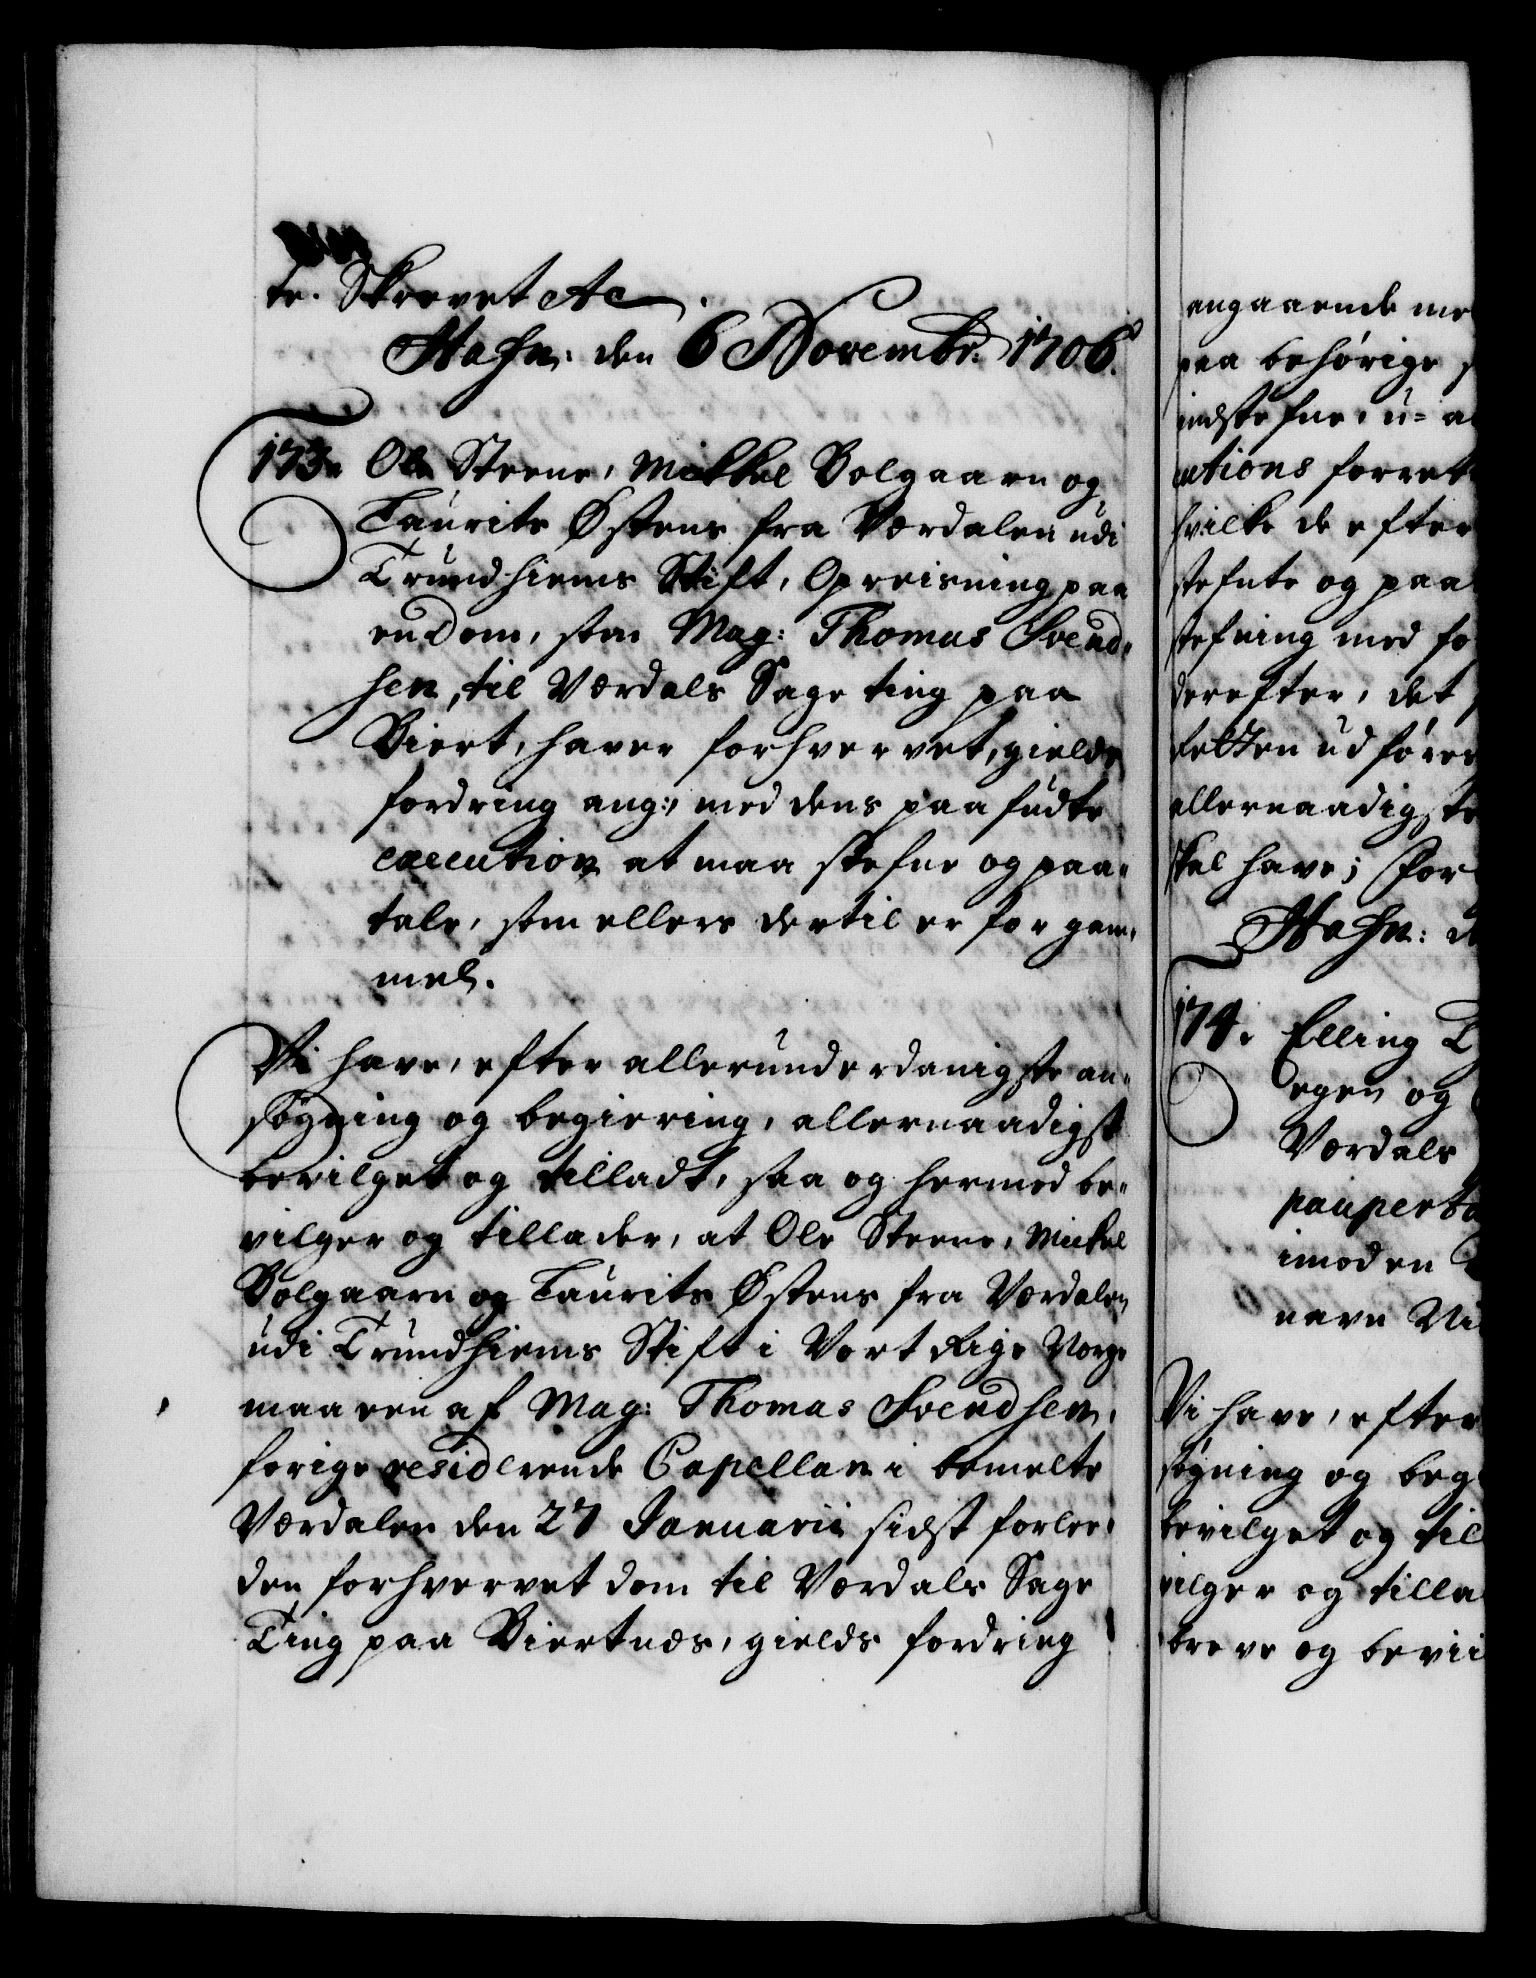 te. Skrevet etc.
Hafn: den 6 Novembr: 1706.
173. Ole Steene, Mikkel Bolgaarn og
Laurits Østens fra Værdalen udi
Trundhiems Stift, Opreisning paa
en Dom, som Mag: Thomas Svend-
sen, til Værdals Sage ting paa
Biert, haver forhvervet, gields
fordring ang:, med dens paafudte
execution at maa stefne og paa-
tale, som ellers dertil er for gam-
mel.
Vi have, efter allerunderdanigste an-
søgning og begiering, allernaadigst
bevilget og tilladt, saa og hermed be-
vilger og tillader, at Ole Steene, Mickel
Bolgaarn og Laurits Østens fra Værdalen
udi Trundhiems Stift i Vort Rige Norge
maa een af Mag: Thomas Svendsen,
forige residerende Capellan i bemelte
Værdalen den 27 Januarii sidst forlee-
den forhvervet dom til Værdals Sage
Ting paa Biertnæs, gields fordring
angaaende me
paa behørige
indstefne, u-a
cutions forret
hvilke de efter
stefnte og paa
stefning med fo
derefter, det
fekten udfører
allernaadigste
skal have; For
Hafn: d
174. Elling
egen og
Værdals
pauperta
imod en
navn Ni
Vi have, efter
søgning og beg
bevilget og til
vilger og tilla
breve og bevii